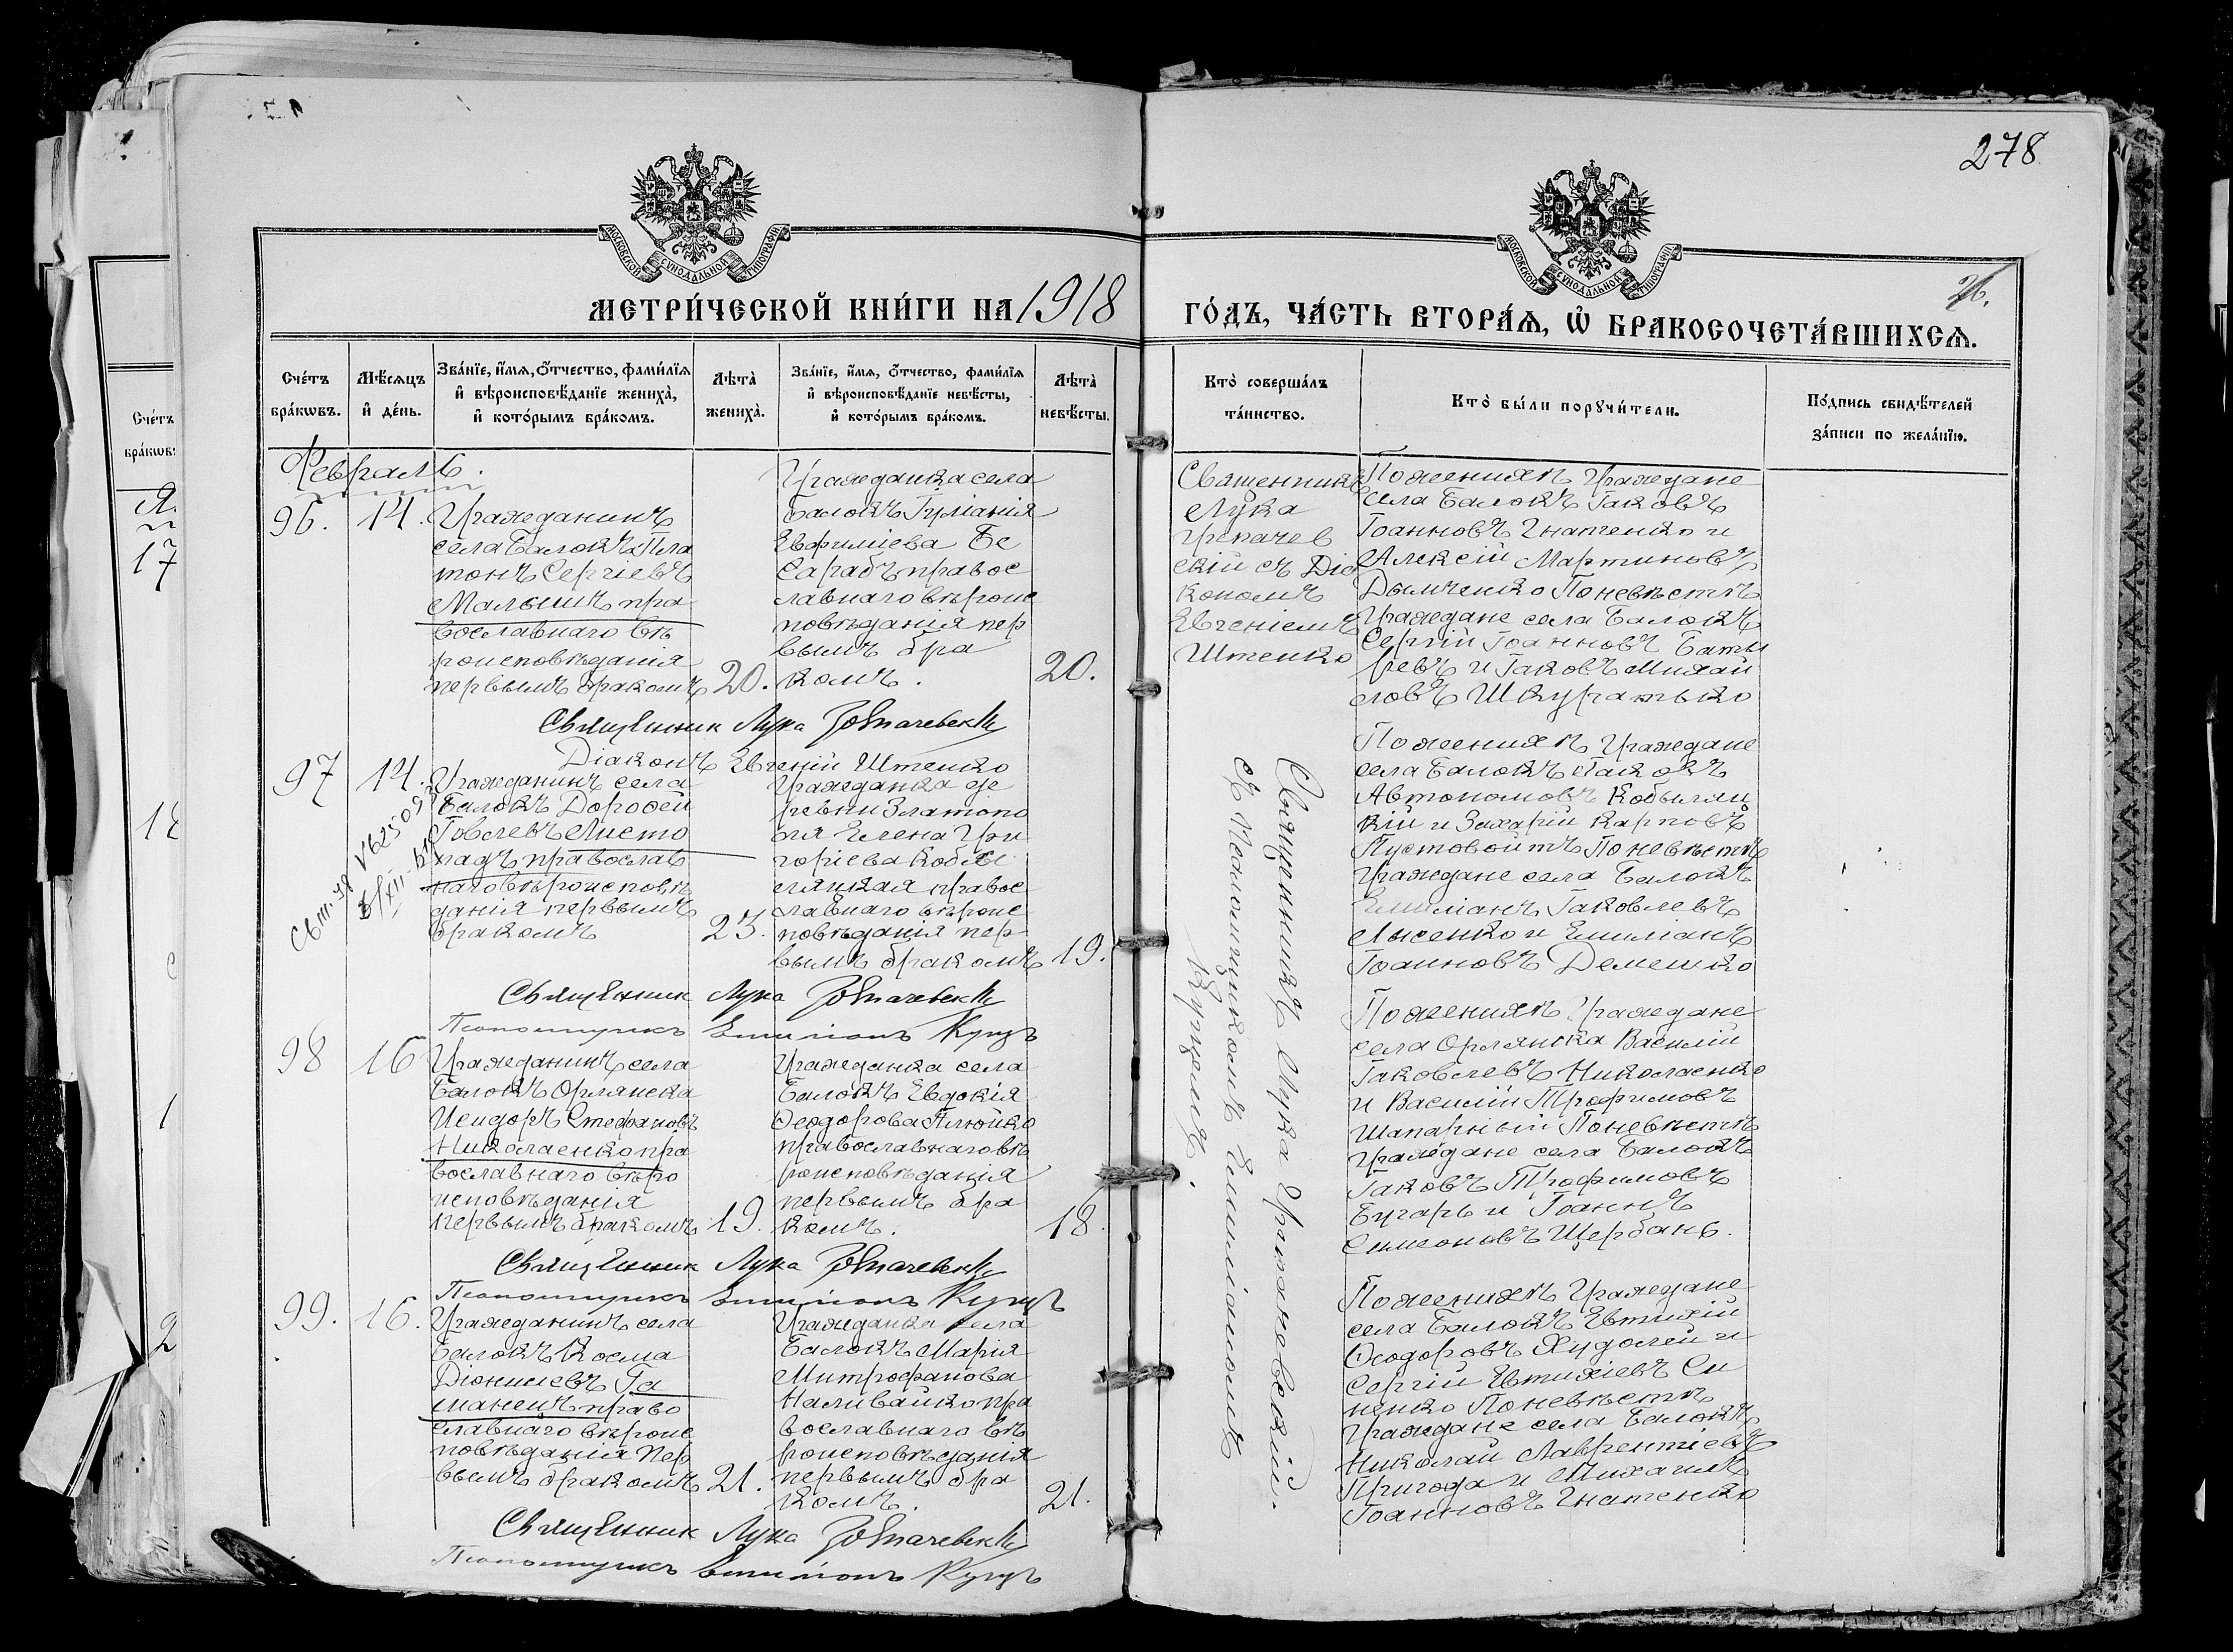 278
26.
МОСКОВСКОЙ СѴНОДАЛЬНОЙ ТИПОГРАФІИ
МОСКОВСКОЙ СѴНОДАЛЬНОЙ ТИПОГРАФІИ
МЕТРИ́ЧЕСКОЙ КНИ́ГИ НА 1918 ГО́ДЪ, ЧА́СТЬ ВТОРА́Ѧ, Ѽ БРАКОСОЧЕТА́ВШИХСѦ.
Сче́тъ
бра́кѡвъ.
Мѣ́сѧцъ
и҆ де́нь.
Зва́нїе, и҆́мѧ, ѻ҆́тчество, фами́лїѧ
и҆ вѣроисповѣ́данїе жениха̀,
и҆ кото́рымъ бра́комъ.
Лѣта̀
жениха̀.
Зва́нїе, и҆́мѧ, ѻ҆́тчество, фами́лїѧ
и҆ вѣроисповѣ́данїе невѣ́сты,
и҆ кото́рымъ бра́комъ.
Лѣта̀
невѣ́сты.
Кто̀ соверша́лъ
та́инство.
Кто̀ бы́ли порꙋчи́тели.
По́дпись свидѣ́телей
за́писи по жела́нїю.
Февраль.
96.
14.
Гражданинъ
села Балокъ Пла
тонъ Сергіевъ
Малышъ пра
вославнаго вѣ
роисповѣданія
первымъ бракомъ
20.
Гражданка села
Балокъ Іуліанія
Евфиміева Бе
Сарабъ правос
лавнаго вѣроис
повѣданія пер
вымъ бра
комъ.
20.
Священникъ
Лука
скій съ Діа
кономъ
Евгеніемъ
Штенко
По женихѣ Граждане
села Балокъ Іаковъ
Іоанновъ Гнатенко и
Алексій Мартиновъ
Дымченко По невѣстѣ
Граждане села Балокъ
Сергій Іоанновъ Баты
ревъ и Іаковъ Михай
ловъ Шкуратько
Священник Лука
Діаконъ Евгеній Штенко
97
14.
Гражданинъ села
Балокъ Дороѳей
Іовлевъ Листо
падъ православ
наго вѣроисповѣ
данія первымъ
бракомъ
23.
Гражданка де
ревни Златопо
ля Елена Гри
горіева Кобы
ляцкая правос
лавнаго вѣроис
повѣданія пер
вымъ бракомъ
19.
По женихѣ Граждане
села Балокъ Іаковъ
Автономовъ Кобыляц
кій и Захарій Карповъ
Пустовойтъ По невѣстѣ
Граждане села Балокъ
Емиліанъ Іаковлевъ
Лысенко и Емиліанъ
Іоанновъ Демешко
Священник Лука
Псаломщикъ Емиліанъ Куцъ
98
16
Гражданинъ села
Балокъ Орлянска
Исидоръ Стефановъ
Николаенко пра
вославнаго вѣро
исповѣданія
первымъ бракомъ
19.
Гражданка села
Балокъ Евдокія
Ѳеодорова Плюйко
православнаго вѣ
роисповѣданія
первымъ бра
комъ.
18.
Священникъ Лука
съ Псаломщикомъ Емиліаномъ
Куцомъ.
По женихѣ Граждане
села Орлянска Василій
Іаковлевъ Николаенко
и Василій Трофимовъ
Шапарный По невѣстѣ
Граждане села Балокъ
Іаковъ Трофимовъ
Бугарь и Іоаннъ
Симеоновъ Щербань.
Священник Лука
Псаломщикъ Емиліанъ Куцъ
99.
16.
Гражданинъ села
Балокъ Косма
Діонисіевъ Га
манецъ право
славнаго вѣроис
повѣданія пер
вымъ бракомъ
21.
Гражданка села
Балокъ Марія
Митрофанова
Наливайко пра
вославнаго вѣ
роисповѣданія
первымъ бра
комъ.
21.
По женихѣ Граждане
села Балокъ Евтихій
Ѳеодоровъ Худолей и
Сергій Евтихіевъ Си
ненко По невѣстѣ
Граждане села Балокъ
Николай Лаврентіевъ
Пригода и Михаилъ
Іоанновъ Гнатенко
Священник Лука
Псаломщикъ Емиліанъ Куцъ